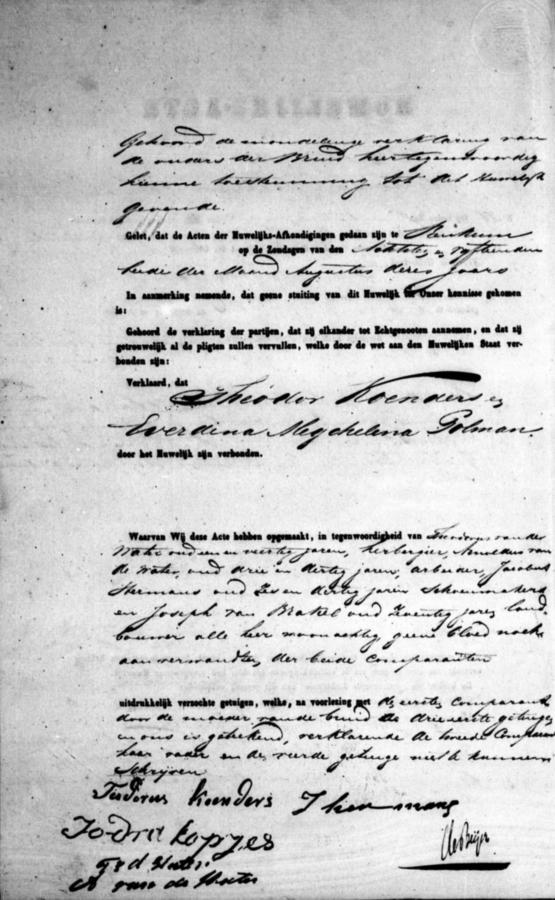 Gehoord de mondelinge verklaring van
de ouders der Bruid hiertegenwoordig
hunne toestemming tot dit Huwelijk
gevende
Gelet, dat de Acten der Huwelijks-Afkondigingen gedaan zijn te
op de Zondagen van den Achtsten en vyftienden
beide der Maand Augustus dezes jaars
In aanmerking nemende, dat geene stuiting van dit Huwelijk ter Onzer kennisse gekomen
is:
Gehoord de verklaring der partijen, dat zij elkander tot Echtgenooten aannemen, en dat zij
getrouwelijk al de pligten zullen vervullen, welke door de wet aan den Huwelijken Staat ver-
bonden zijn:
Verklaard, dat
Theodor Koenders en
Everdina Megchelina Polman
door het Huwelijk zijn verbonden.
Waarvan Wij deze Acte hebben opgemaakt, in tegenwoordigheid van Theodorus van de
Water oud een en veertig jaren, herbergier, van
de Water, oud drie en dertig jaren, arbeider, Jacobus
Hermans oud Zes en dertig jaren Schoenmaker
en Joseph van Brakel oud Twentig jaren land
bouwer alle hier woonachtig, geene bloed noch
aanverwanten der beide Comparanten
uitdrukkelijk verzochte getuigen, welke, na voorlezing met de eerste Comparant
door de moeder van de bruid de drie eerste getuigen
en ons is getekend, verklarende de tweede Comparant
haar vader en de vierde getuige niet te kunnen
Schrijven
Koenders J hermans
kopjes